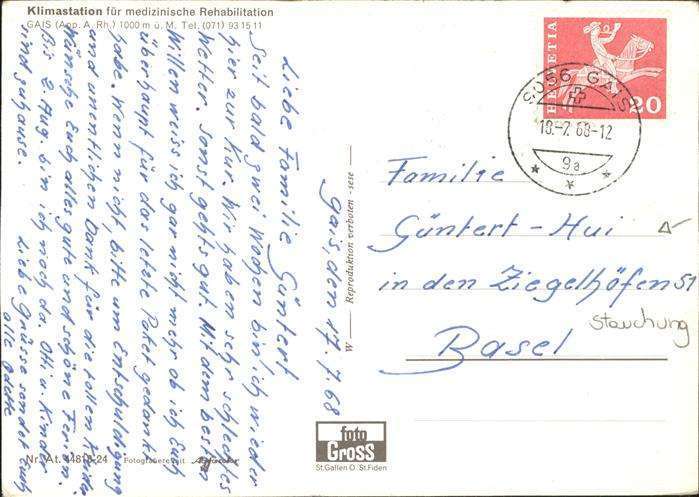 Klimastation für medizinische Rehabilitation
GAIS (App. A. Rh.) 1000 m ü. M. Tel. (071) 93 15 11
HELVETIA
20
9056 GAIS
18.-7.68-12
9a
Gais, den 17.7.68
Liebe Familie Güntert
Seit bald zwei Wochen bin ich wieder
hier zur Kur. Wir haben sehr schlechtes
Wetter. Sonst gehts gut. Mit dem besten
Willen weiss ich gar nicht mehr ob ich Euch
überhaupt für das letzte Paket gedankt
habe. Wenn nicht, bitte um Entschuldigung
und unentlichen Dank für die tollen Kleider
Wünsche Euch alles gute und schöne Ferien.
Bis 2. Aug. bin ich noch da. Oth. u. Kinder
sind zuhause. Liebe Grüsse sendet Euch
alle Odette
W — Reproduktion verboten - sese —
Familie
Güntert-Hui
in den Ziegelhöfen 51
Stauchung
Basel
foto
GROSS
St. Gallen O. St. Fiden
Nr. At. 44818-24 Fotografiere mit